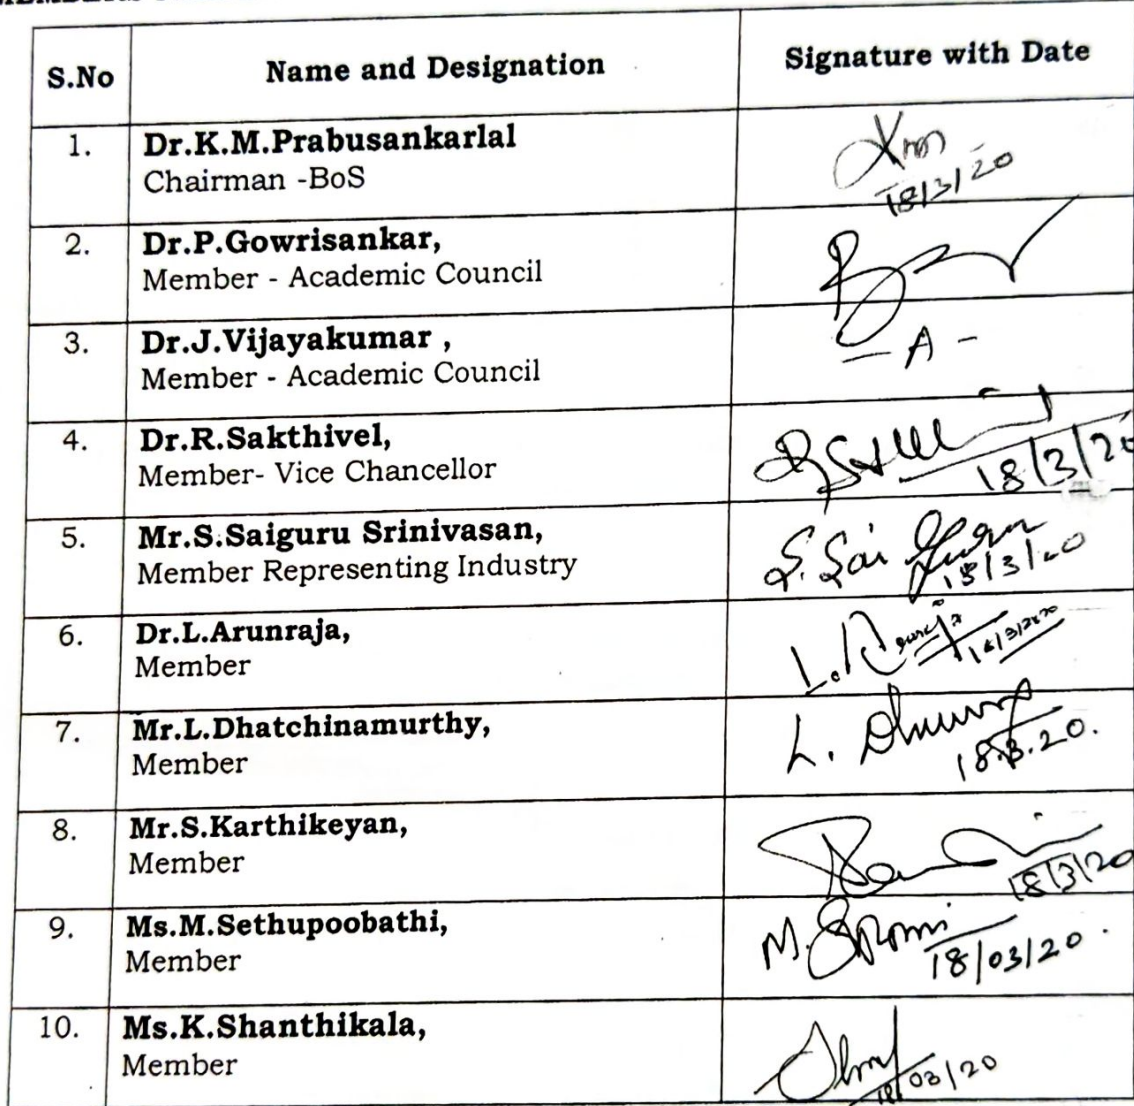 S.No Name and Designation Signature with Date
1. Dr.K.M.Prabusankarlal
Chairman -BoS
18/3/20
2. Dr.P.Gowrisankar,
Member - Academic Council
3. Dr.J.Vijayakumar ,
Member - Academic Council
- A -
4. Dr.R.Sakthivel,
Member- Vice Chancellor
18/3/20
5. Mr.S.Saiguru Srinivasan,
Member Representing Industry
S. Sai Guru
18/3/20
6. Dr.L.Arunraja,
Member
18/3/2020
7. Mr.L.Dhatchinamurthy,
Member
18.3.20.
8. Mr.S.Karthikeyan,
Member
18/3/20
9. Ms.M.Sethupoobathi,
Member
18/03/20.
10. Ms.K.Shanthikala,
Member
18/03/20